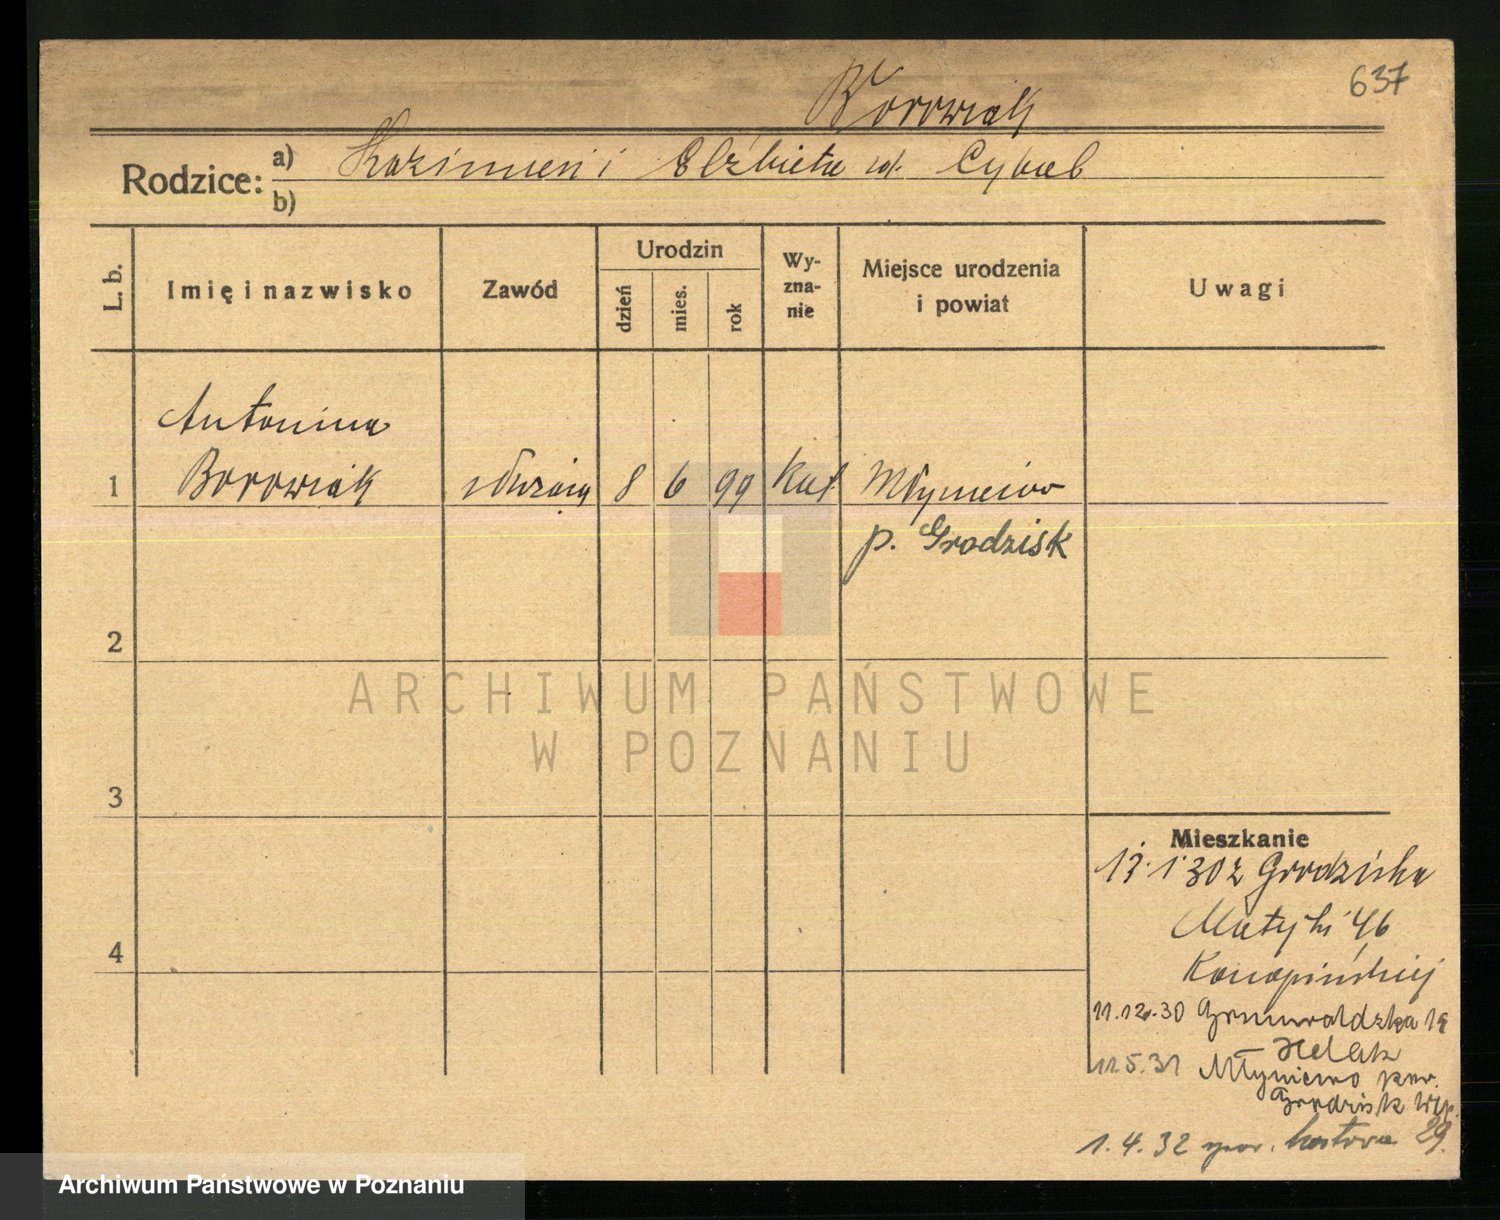 637
Borowiak
Rodzice: a) Kazimierz i Elżbieta z d. Cybal
b)
L. b. Imię i nazwisko Zawód Urodzin dzień mies. rok Wyznanie Miejsce urodzenia i powiat Uwagi
Antonina
1 Borowiak służąca 8 6 99 kat Młyniewo
p. Grodzisk
2
ARCHIWUM PAŃSTWOWE
W POZNANIU
3
Mieszkanie
13. 1 30 z Grodziska
Matejki 46
Konopińskiej
4
11.12.30 Grunwaldzka 19
Helak
11.5.31 Młyniewo pow.
Grodzisk Wlp.
1.4.32 29.
Archiwum Państwowe w Poznaniu